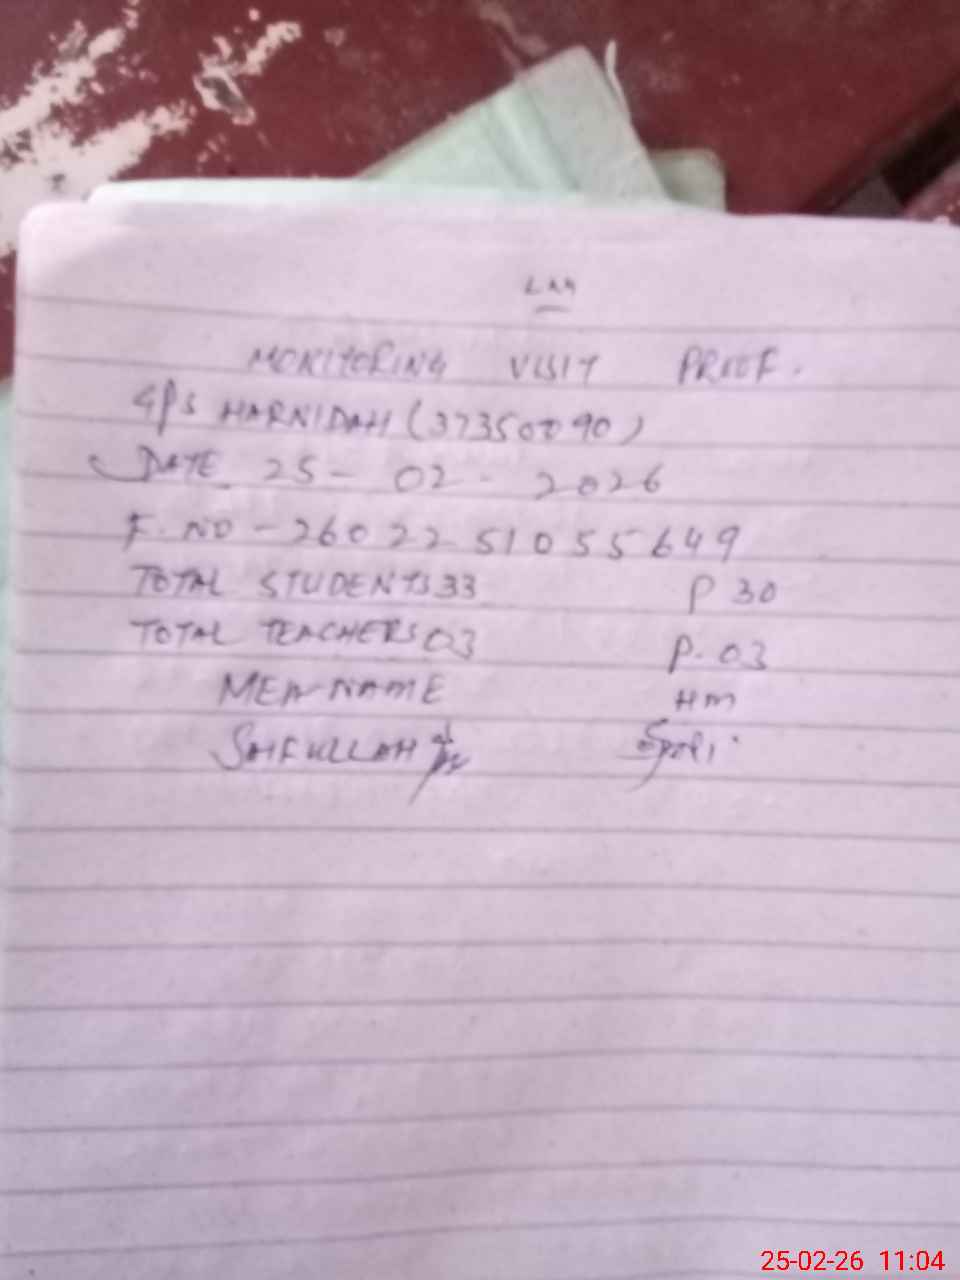 MONITORING VISIT PROOF.
GPS HARNIDAH (37350090)
DATE 25-02-2026
F.NO-26022251055649
TOTAL STUDENTS 33 P 30
TOTAL TEACHERS 03 P.03
MEA NAME HM
SAIFULLAH
25-02-26 11:04